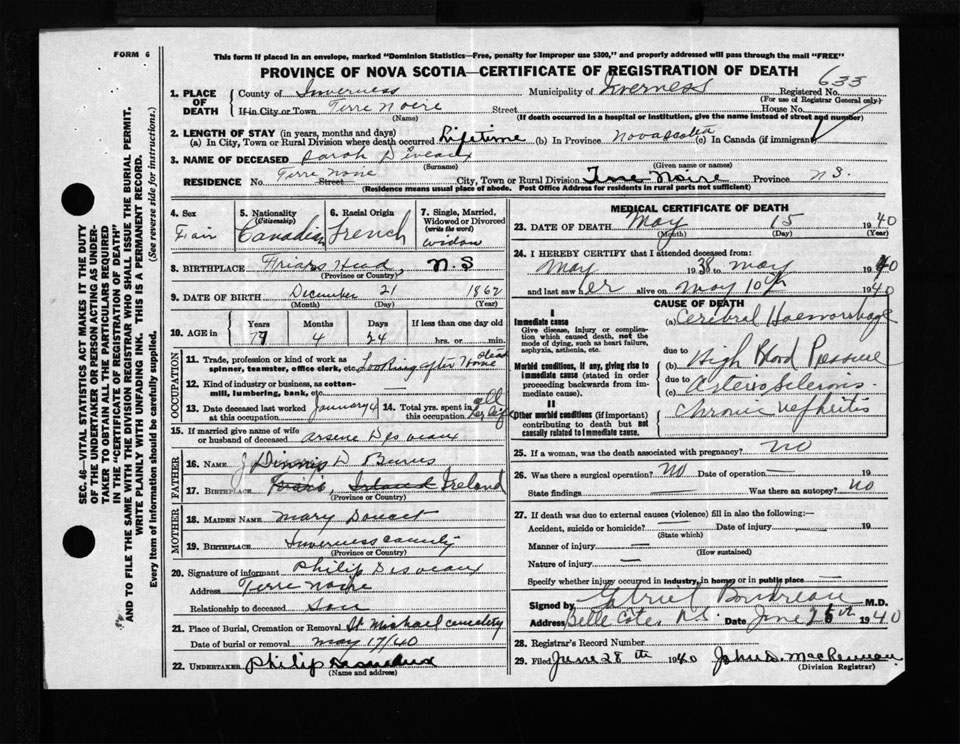 FORM 6
This form if placed in an envelope, marked "Dominion Statistics—Free, penalty for improper use $300," and properly addressed will pass through the mail "FREE"
PROVINCE OF NOVA SCOTIA—CERTIFICATE OF REGISTRATION OF DEATH
633
1. PLACE OF DEATH
County of Inverness Municipality of Inverness Registered No.
(For use of Registrar General only)
If in City or Town Terre Noire Street House No.
(Name) (If death occurred in a hospital or institution, give the name instead of street and number)
2. LENGTH OF STAY (in years, months and days)
(a) In City, Town or Rural Division where death occurred Lifetime (b) In Province Nova Scotia (c) In Canada (if immigrant)
3. NAME OF DECEASED Sarah Diveaux
(Surname) (Given name or names)
RESIDENCE No. Terre Noire Street City, Town or Rural Division Terre Noire Province N S.
(Residence means usual place of abode. Post Office Address for residents in rural parts not sufficient)
4. Sex 5. Nationality (Citizenship) 6. Racial Origin 7. Single, Married, Widowed or Divorced (write the word)
Canadian French widow
8. BIRTHPLACE Friars Head, N.S
(Province or Country)
9. DATE OF BIRTH December 21 1862
(Month) (Day) (Year)
10. AGE in Years Months Days If less than one day old
77 4 24 hrs. or min.
OCCUPATION
11. Trade, profession or kind of work as spinner, teamster, office clerk, etc. Looking after Home
12. Kind of industry or business, as cotton-mill, lumbering, bank, etc.
13. Date deceased last worked at this occupation January 4 14. Total yrs. spent in this occupation all her life
15. If married give name of wife or husband of deceased Arsene Desveaux
FATHER
16. NAME D Burns
17. BIRTHPLACE Ireland Ireland
(Province or Country)
MOTHER
18. MAIDEN NAME Mary Doucet
19. BIRTHPLACE Inverness County
(Province or Country)
20. Signature of informant Philip Desveaux
Address Terre Noire
Relationship to deceased Son
21. Place of Burial, Cremation or Removal St Michael cemetery
Date of burial or removal May 17/40
22. UNDERTAKER Philip Desveaux
(Name and address)
MEDICAL CERTIFICATE OF DEATH
23. DATE OF DEATH May 15 1940
(Month) (Day) (Year)
24. I HEREBY CERTIFY that I attended deceased from:
May 1938 to May 1940
and last saw her alive on May 10th 1940
CAUSE OF DEATH
I
Immediate cause
Give disease, injury or complication which caused death, not the mode of dying, such as heart failure, asphyxia, asthenia, etc.
(a) Cerebral Haemorrhage
due to
Morbid conditions, if any, giving rise to immediate cause (stated in order proceeding backwards from immediate cause).
(b) High Blood Pressure
due to
(c) Arterio Sclerosis
II
Other morbid conditions (if important) contributing to death but not causally related to immediate cause.
Chronic Nephritis
25. If a woman, was the death associated with pregnancy? NO
26. Was there a surgical operation? NO Date of operation 19
State findings Was there an autopsy? NO
27. If death was due to external causes (violence) fill in also the following:—
Accident, suicide or homicide? Date of injury 19
(State which)
Manner of injury
(How sustained)
Nature of injury
Specify whether injury occurred in industry, in home, or in public place
Signed by Gabriel Boudreau M.D.
Address Belle Cote N.S. Date June 26th 1940
28. Registrar's Record Number
29. Filed June 28th 1940 John D. MacLennan
(Division Registrar)
SEC. 46—VITAL STATISTICS ACT MAKES IT THE DUTY OF THE UNDERTAKER OR PERSON ACTING AS UNDERTAKER TO OBTAIN ALL THE PARTICULARS REQUIRED IN THE "CERTIFICATE OF REGISTRATION OF DEATH" AND TO FILE THE SAME WITH THE DIVISION REGISTRAR WHO SHALL ISSUE THE BURIAL PERMIT.
WRITE PLAINLY WITH UNFADING INK. THIS IS A PERMANENT RECORD.
Every item of information should be carefully supplied. (See reverse side for instructions.)